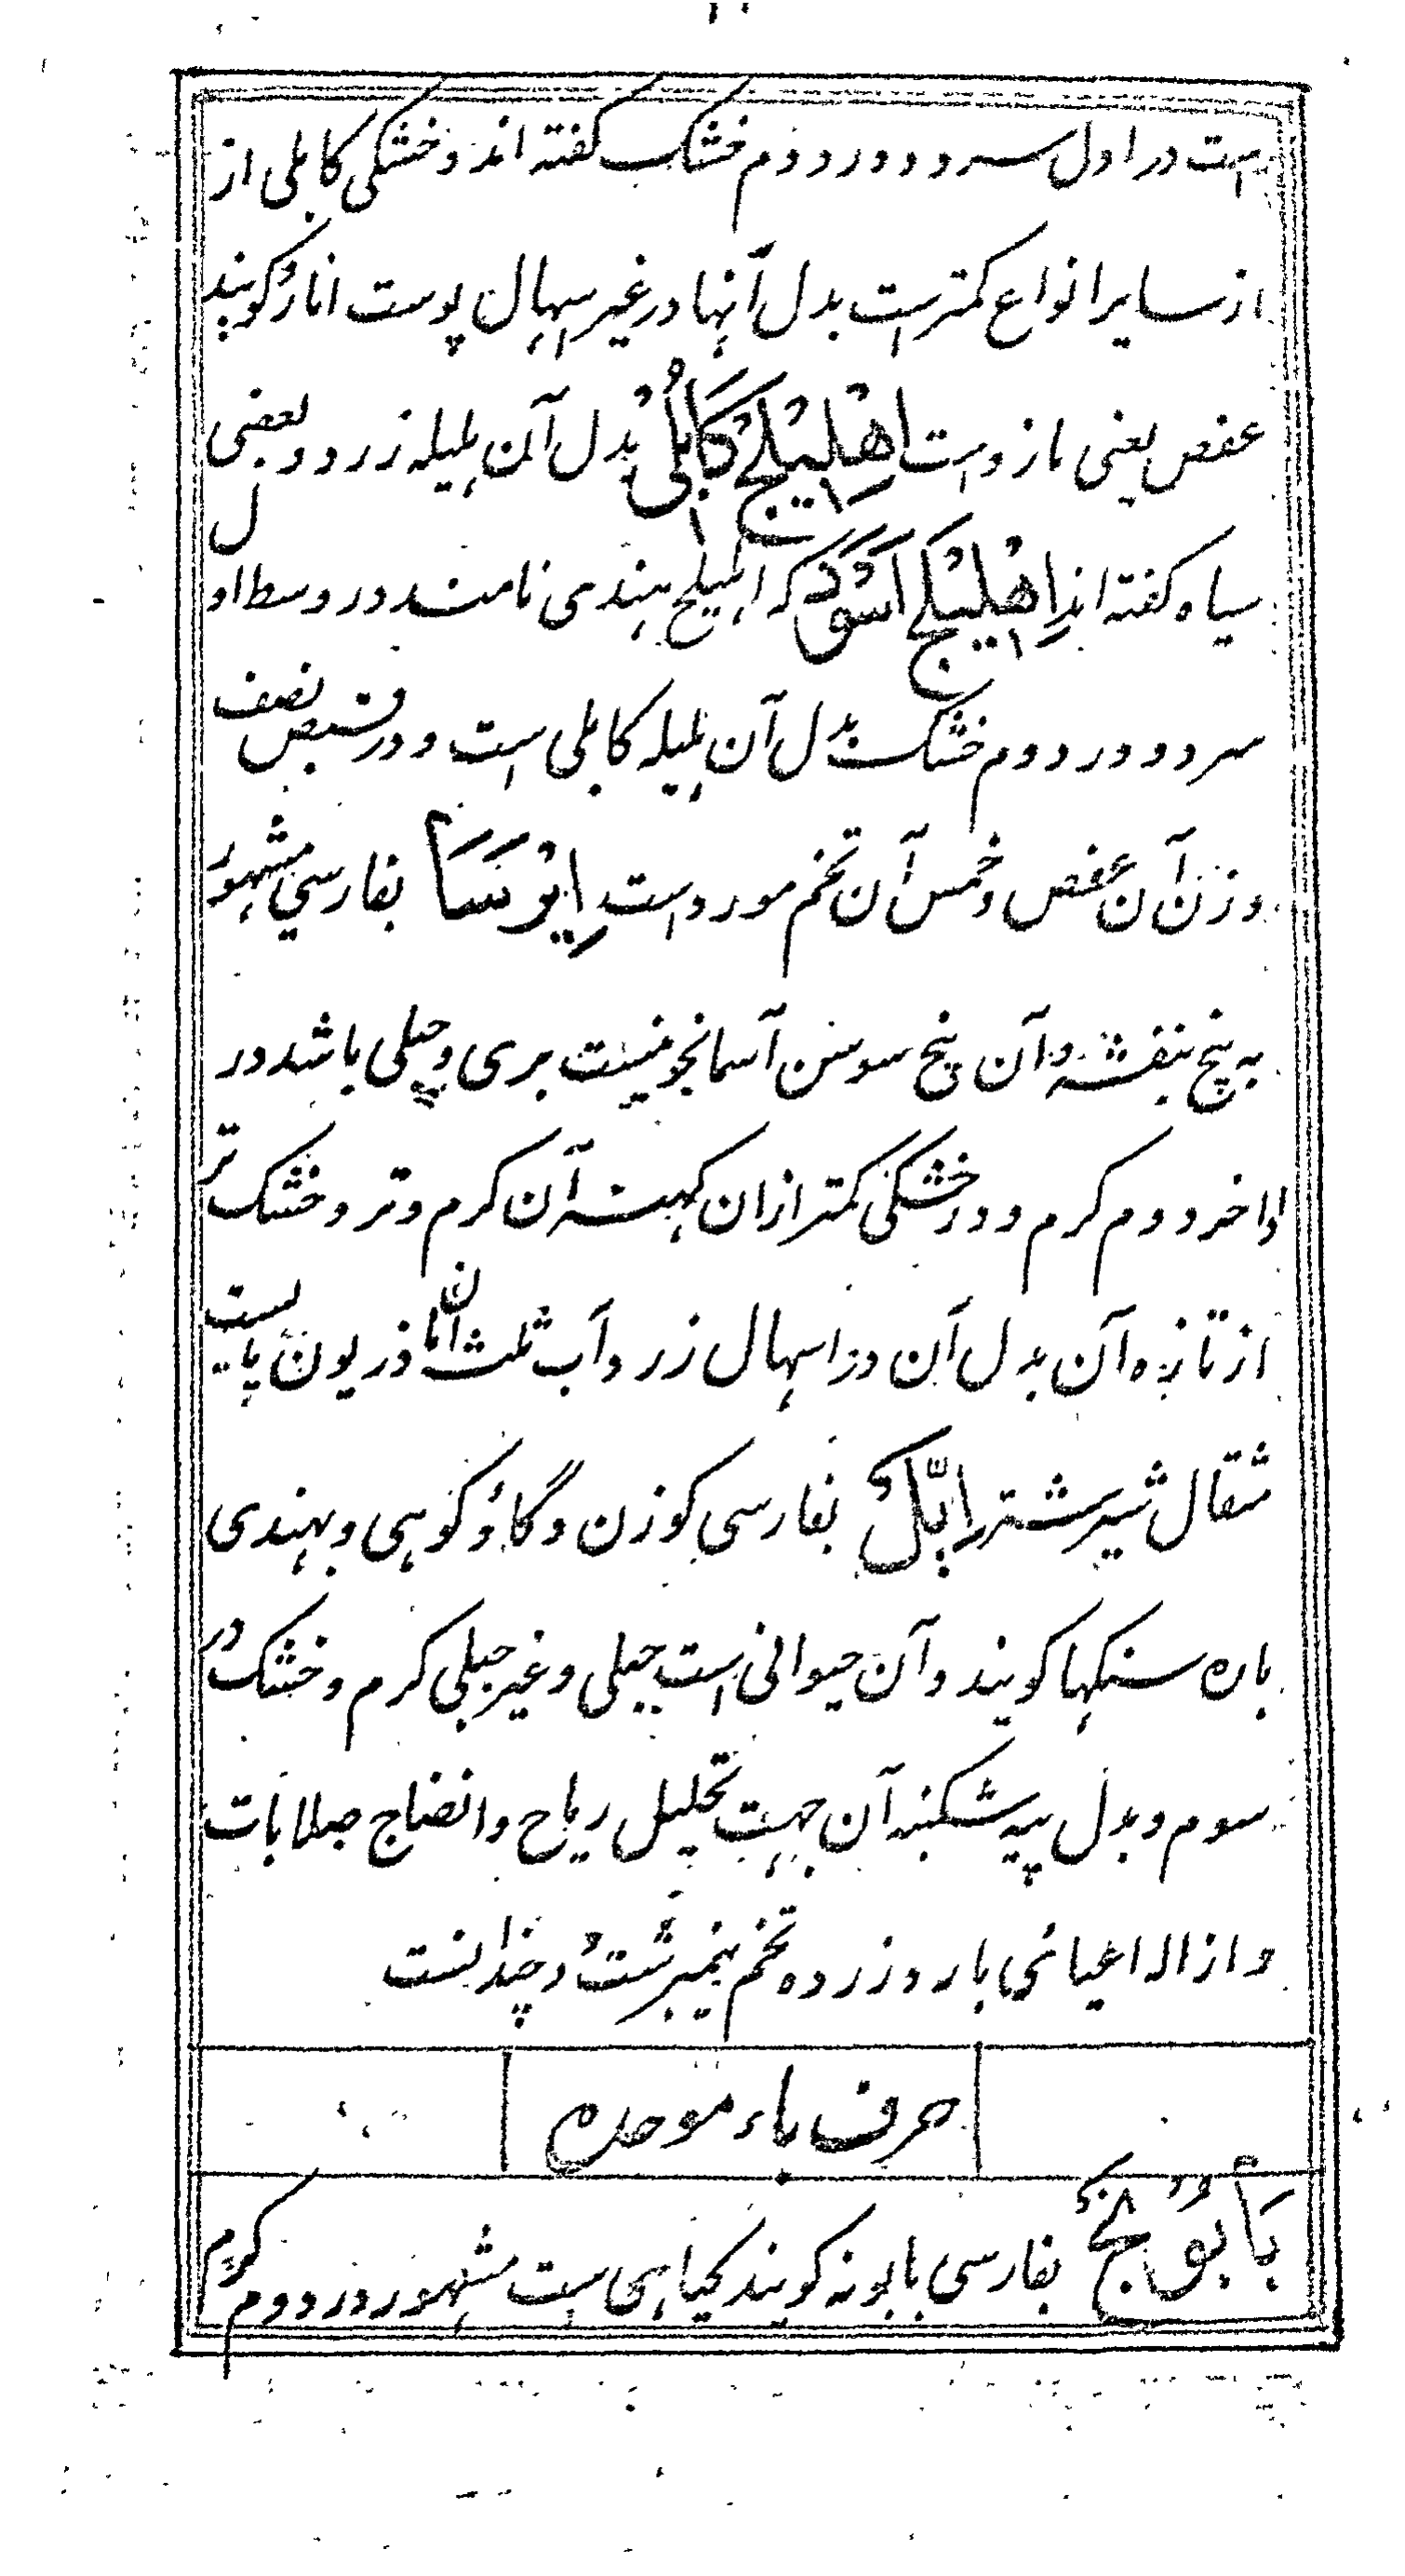 است در اول سرد و در دوم خشک گفته اند و خشکی کابلی از
از سایر انواع کمترست بدل آنها در غیر اسهال پوست انار و گویند
عفص یعنی مازوست اِهْلِیْلَجْ کَابُلُیْ بدل آن هلیله زرد و بعضی
سیاه گفته اند اِهْلِیْلَجْ اَسْوَدْ که اهلیلج هندی نامند در وسط اول
سرد و در دوم خشک بدل آن هلیله کابلی است و در قبض نصف
وزن آن عفص و خمس آن تخم مورد است اِیْرَسَا بفارسی مشهور
به بیخ بنفشه و آن بیخ سوسن آسمانجونیست بری و جبلی باشد در
اواخر دوم گرم و در خشکی کمتر ازان کهنه آن گرم و تر و خشک تر
از تازه آن بدل آن در اسهال زرد آب ثلث آن ماذریون با بیست
مثقال شیر شتر اِیَّلْ بفارسی گوزن و گاو کوهی و بهندی
باره سنگها گویند و آن حیوانی است جبلی و غیر جبلی گرم و خشک در
سوم و بدل پیه شکنبه آن جهت تحلیل ریاح و انضاج صلابات
و ازاله اعیائی بارد زرده تخم نیمبرشت دو چند انست
حرف باء موحده
بَابُوْنَجْ بفارسی بابونه گویند گیاهی است مشهور در دوم گرم